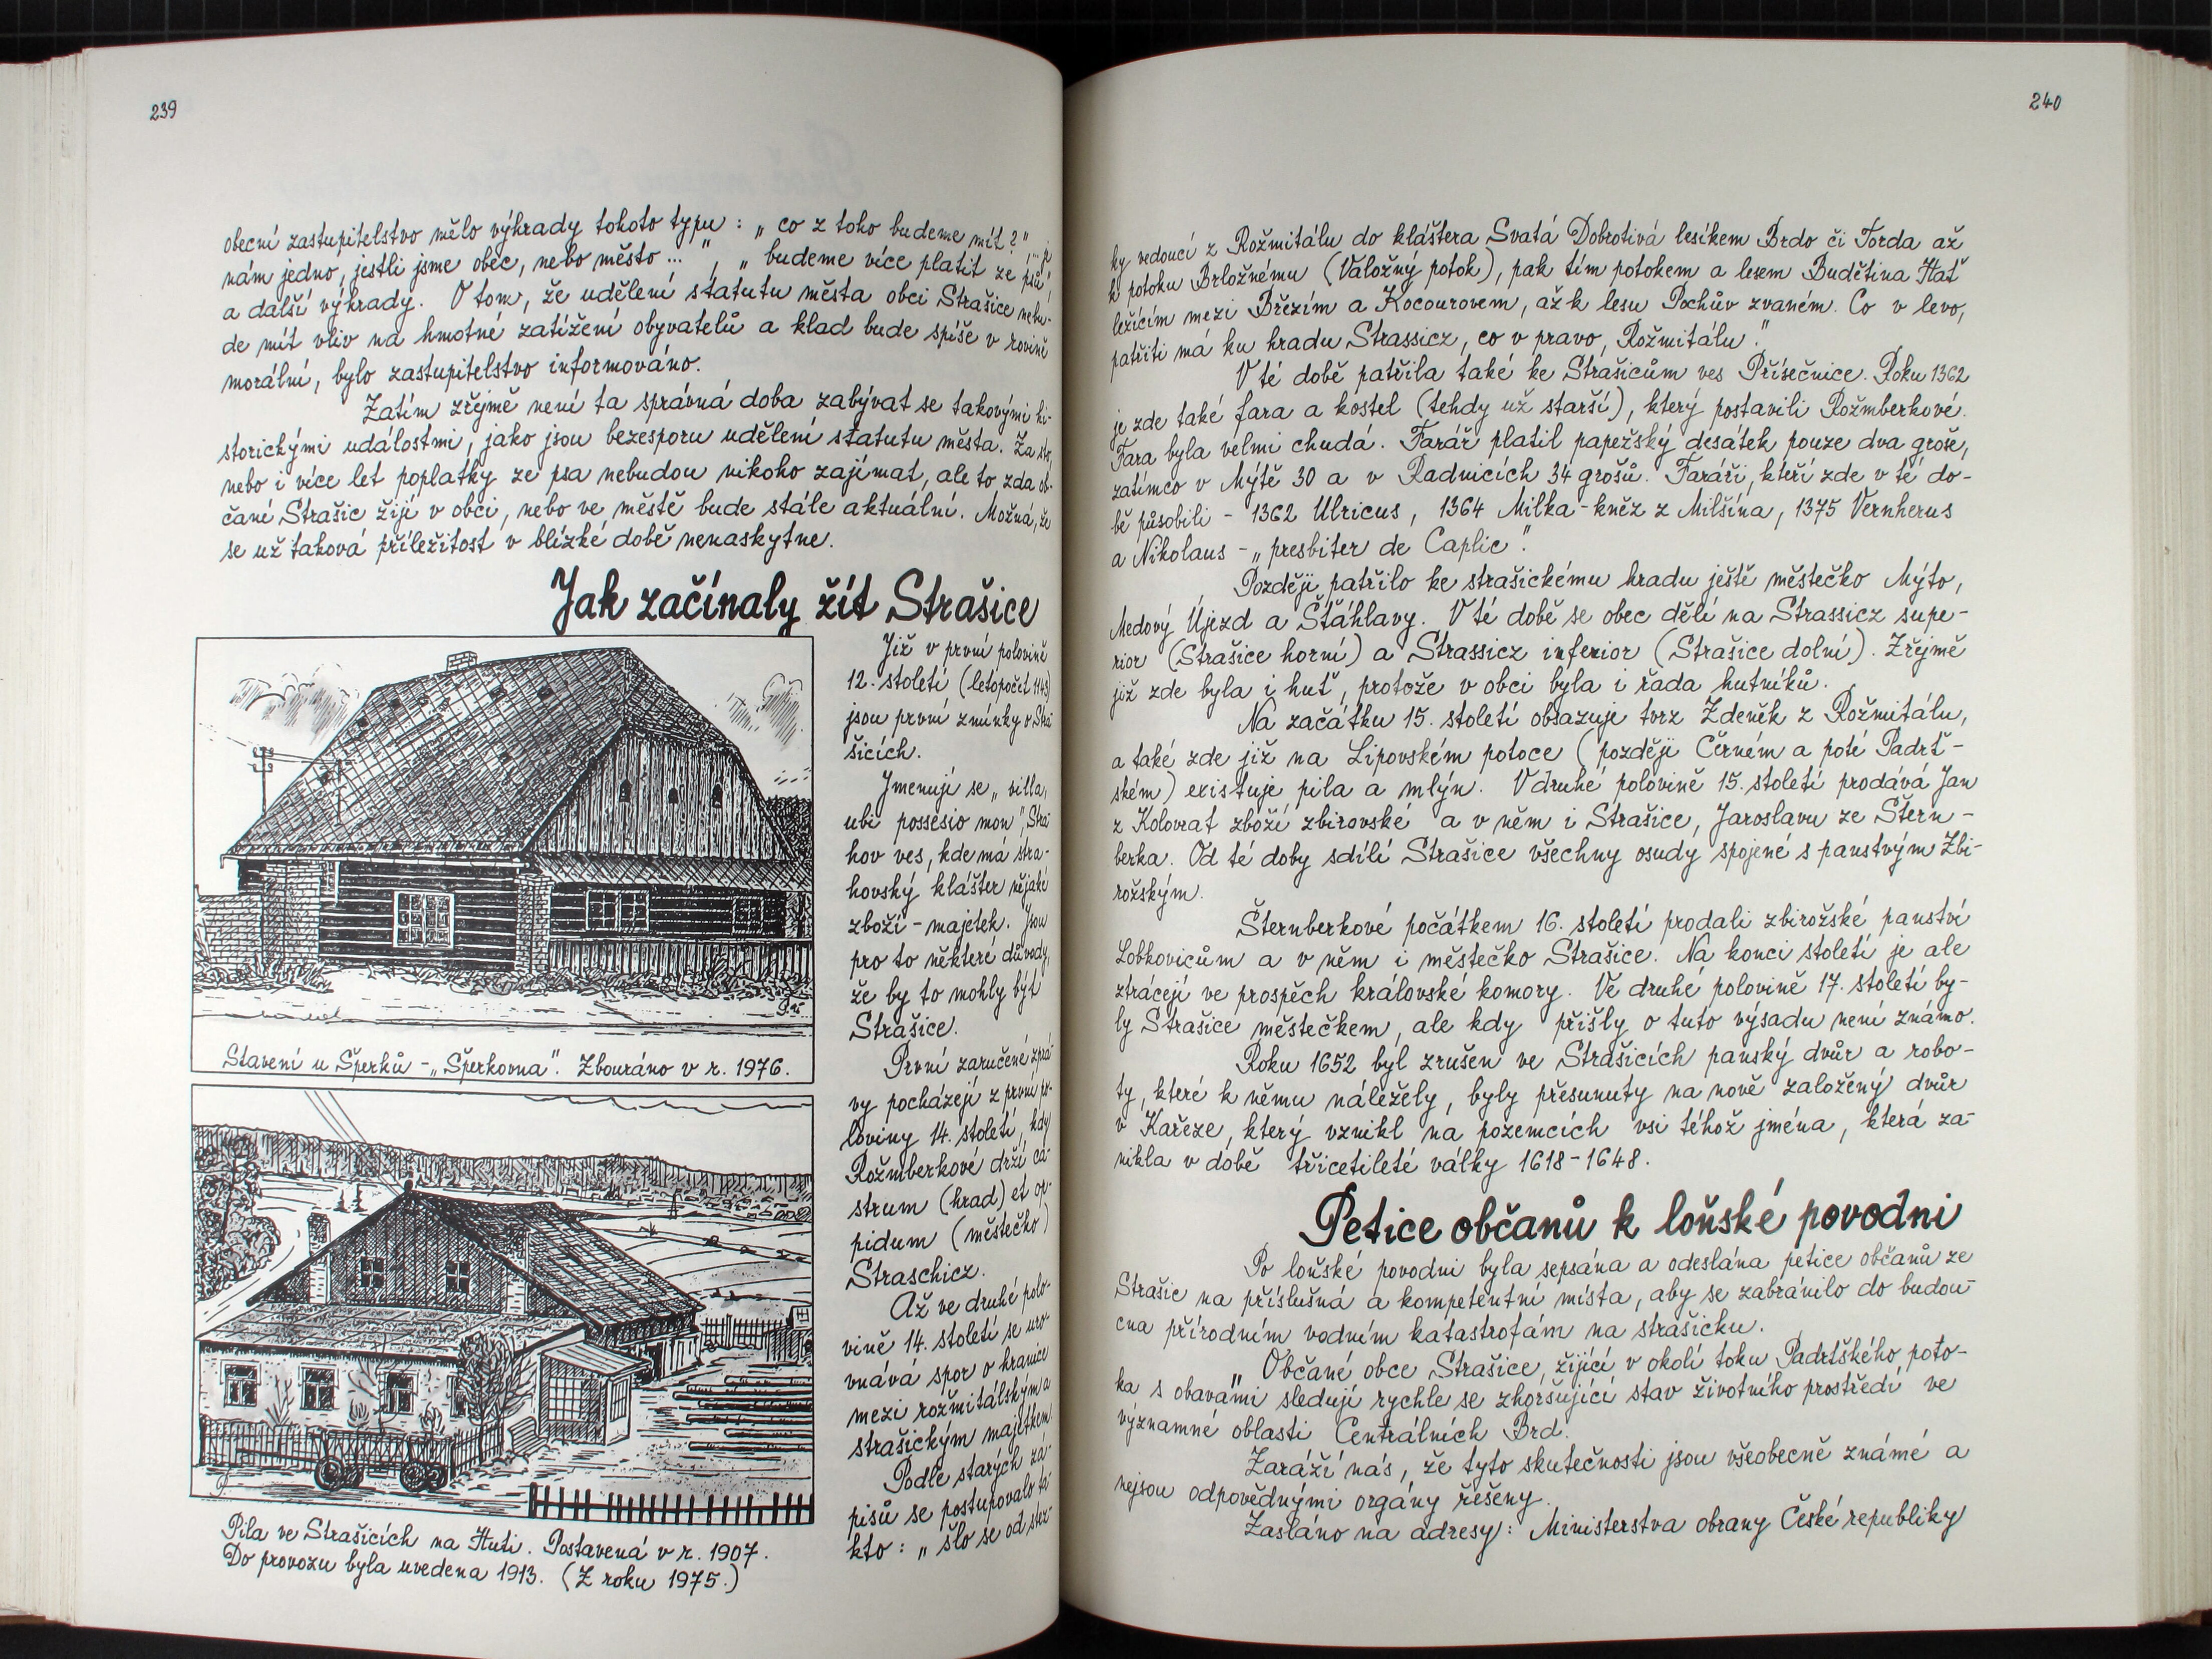 239
obecní zastupitelstvo mělo výhrady tohoto typu : „ co z toho budeme mít ? “ „ je
nám jedno, jestli jsme obec, nebo město ... “ , „ budeme více platit ze psů “,
a další výhrady. O tom, že udělení statutu města obci Strašice nebu-
de mít vliv na hmotné zatížení obyvatelů a klad bude spíše v rovině
morální, bylo zastupitelstvo informováno.
Zatím zřejmě není ta správná doba zabývat se takovými hi-
storickými událostmi, jako jsou bezesporu udělení statutu města. Za sto,
nebo i více let poplatky ze psa nebudou nikoho zajímat, ale to zda ob-
čané Strašic žijí v obci, nebo ve městě bude stále aktuální. Možná, že
se už taková příležitost v blízké době nenaskytne.
Jak začínaly žít Strašice
Již v první polovině
12. století (letopočit 1143)
jsou první zmínky o Stra
šicích.
Jmenují se „ villa,
ubi possesio mon “, Stra
hov ves, kde má stra-
hovský klášter nějaké
zboží - majetek. “ Jsou
pro to některé důvody,
že by to mohly být
Strašice.
První zaručené zprá-
vy pocházejí z první po-
loviny 14. století, kdy
Rožmberkové drží ca-
strum (hrad) et op-
pidum (městečko)
Straschicz.
Až ve druhé polo-
vině 14. století se uro-
vnává spor o hranice
mezi rožmitálským a
strašickým majetkem.
Podle starých zá-
pisů se postupovalo ta-
kto : „ šlo se od stez-
Stavení u Šperků - „Šperkovna“. Zbouráno v r. 1976.
Pila ve Strašicích na Huti. Postavená v r. 1907.
Do provozu byla uvedena 1913. (Z roku 1975.)
240
ky vedoucí z Rožmitálu do kláštera Svatá Dobrotivá lesíkem Brdo či Torda až
k potoku Brložnému (Valožný potok), pak tím potokem a lesem Budětina Hať
ležícím mezi Březím a Kocourovem, až k lesu Pochův zvaném. Co v levo,
patřiti má ku hradu Strassicz, co v pravo, Rožmitálu “.
V té době patřila také ke Strašicům ves Příšečnice. Roku 1362
je zde také fara a kostel (tehdy už starší), který postavili Rožmberkové.
Fara byla velmi chudá. Farář platil papežský desátek pouze dva groše,
zatímco v Mýtě 30 a v Radnicích 34 grošů. Faráři, kteří zde v té do-
bě působili - 1362 Ulricus, 1364 Milka - kněz z Milšína, 1375 Vernherus
a Nikolaus - „ presbiter de Caplic “.
Později patřilo ke strašickému hradu ještě městečko Mýto,
Medový Újezd a Šťáhlavy. V té době se obec dělí na Strassicz supe-
rior (Strašice horní) a Strassicz inferior (Strašice dolní). Zřejmě
již zde byla i huť, protože v obci byla i řada hutníků.
Na začátku 15. století obsazuje tvrz Zdeněk z Rožmitálu,
a také zde již na Lipovském potoce (později Černém a poté Padrť-
ském) existuje pila a mlýn. V druhé polovině 15. století prodává Jan
z Kolovrat zboží zbirovské a v něm i Strašice, Jaroslavu ze Štern-
berka. Od té doby sdílí Strašice všechny osudy spojené s panstvým Zbi-
rožským.
Šternberkové počátkem 16. století prodali zbirožské panství
Lobkovicům a v něm i městečko Strašice. Na konci století je ale
ztrácejí ve prospěch královské komory. Ve druhé polovině 17. století by-
ly Strašice městečkem, ale kdy přišly o tuto výsadu není známo.
Roku 1652 byl zrušen ve Strašicích panský dvůr a robo-
ty, které k němu náležely, byly přesunuty na nově založený dvůr
v Kařeze, který vznikl na pozemcích vsi téhož jména, která za-
nikla v době třicetileté války 1618 - 1648.
Petice občanů k loňské povodni
Po loňské povodni byla sepsána a odeslána petice občanů ze
Strašic na příslušná a kompetentní místa, aby se zabránilo do budou-
cna přírodním vodním katastrofám na strašicku.
„ Občané obce Strašice, žijící v okolí toku Padrťského poto-
ka s obavami sledují rychle se zhoršující stav životního prostředí ve
významné oblasti Centrálních Brd.
Zaráží nás, že tyto skutečnosti jsou všeobecně známé a
nejsou odpovědnými orgány řešeny.
Zasláno na adresy : Ministerstva obrany České republiky